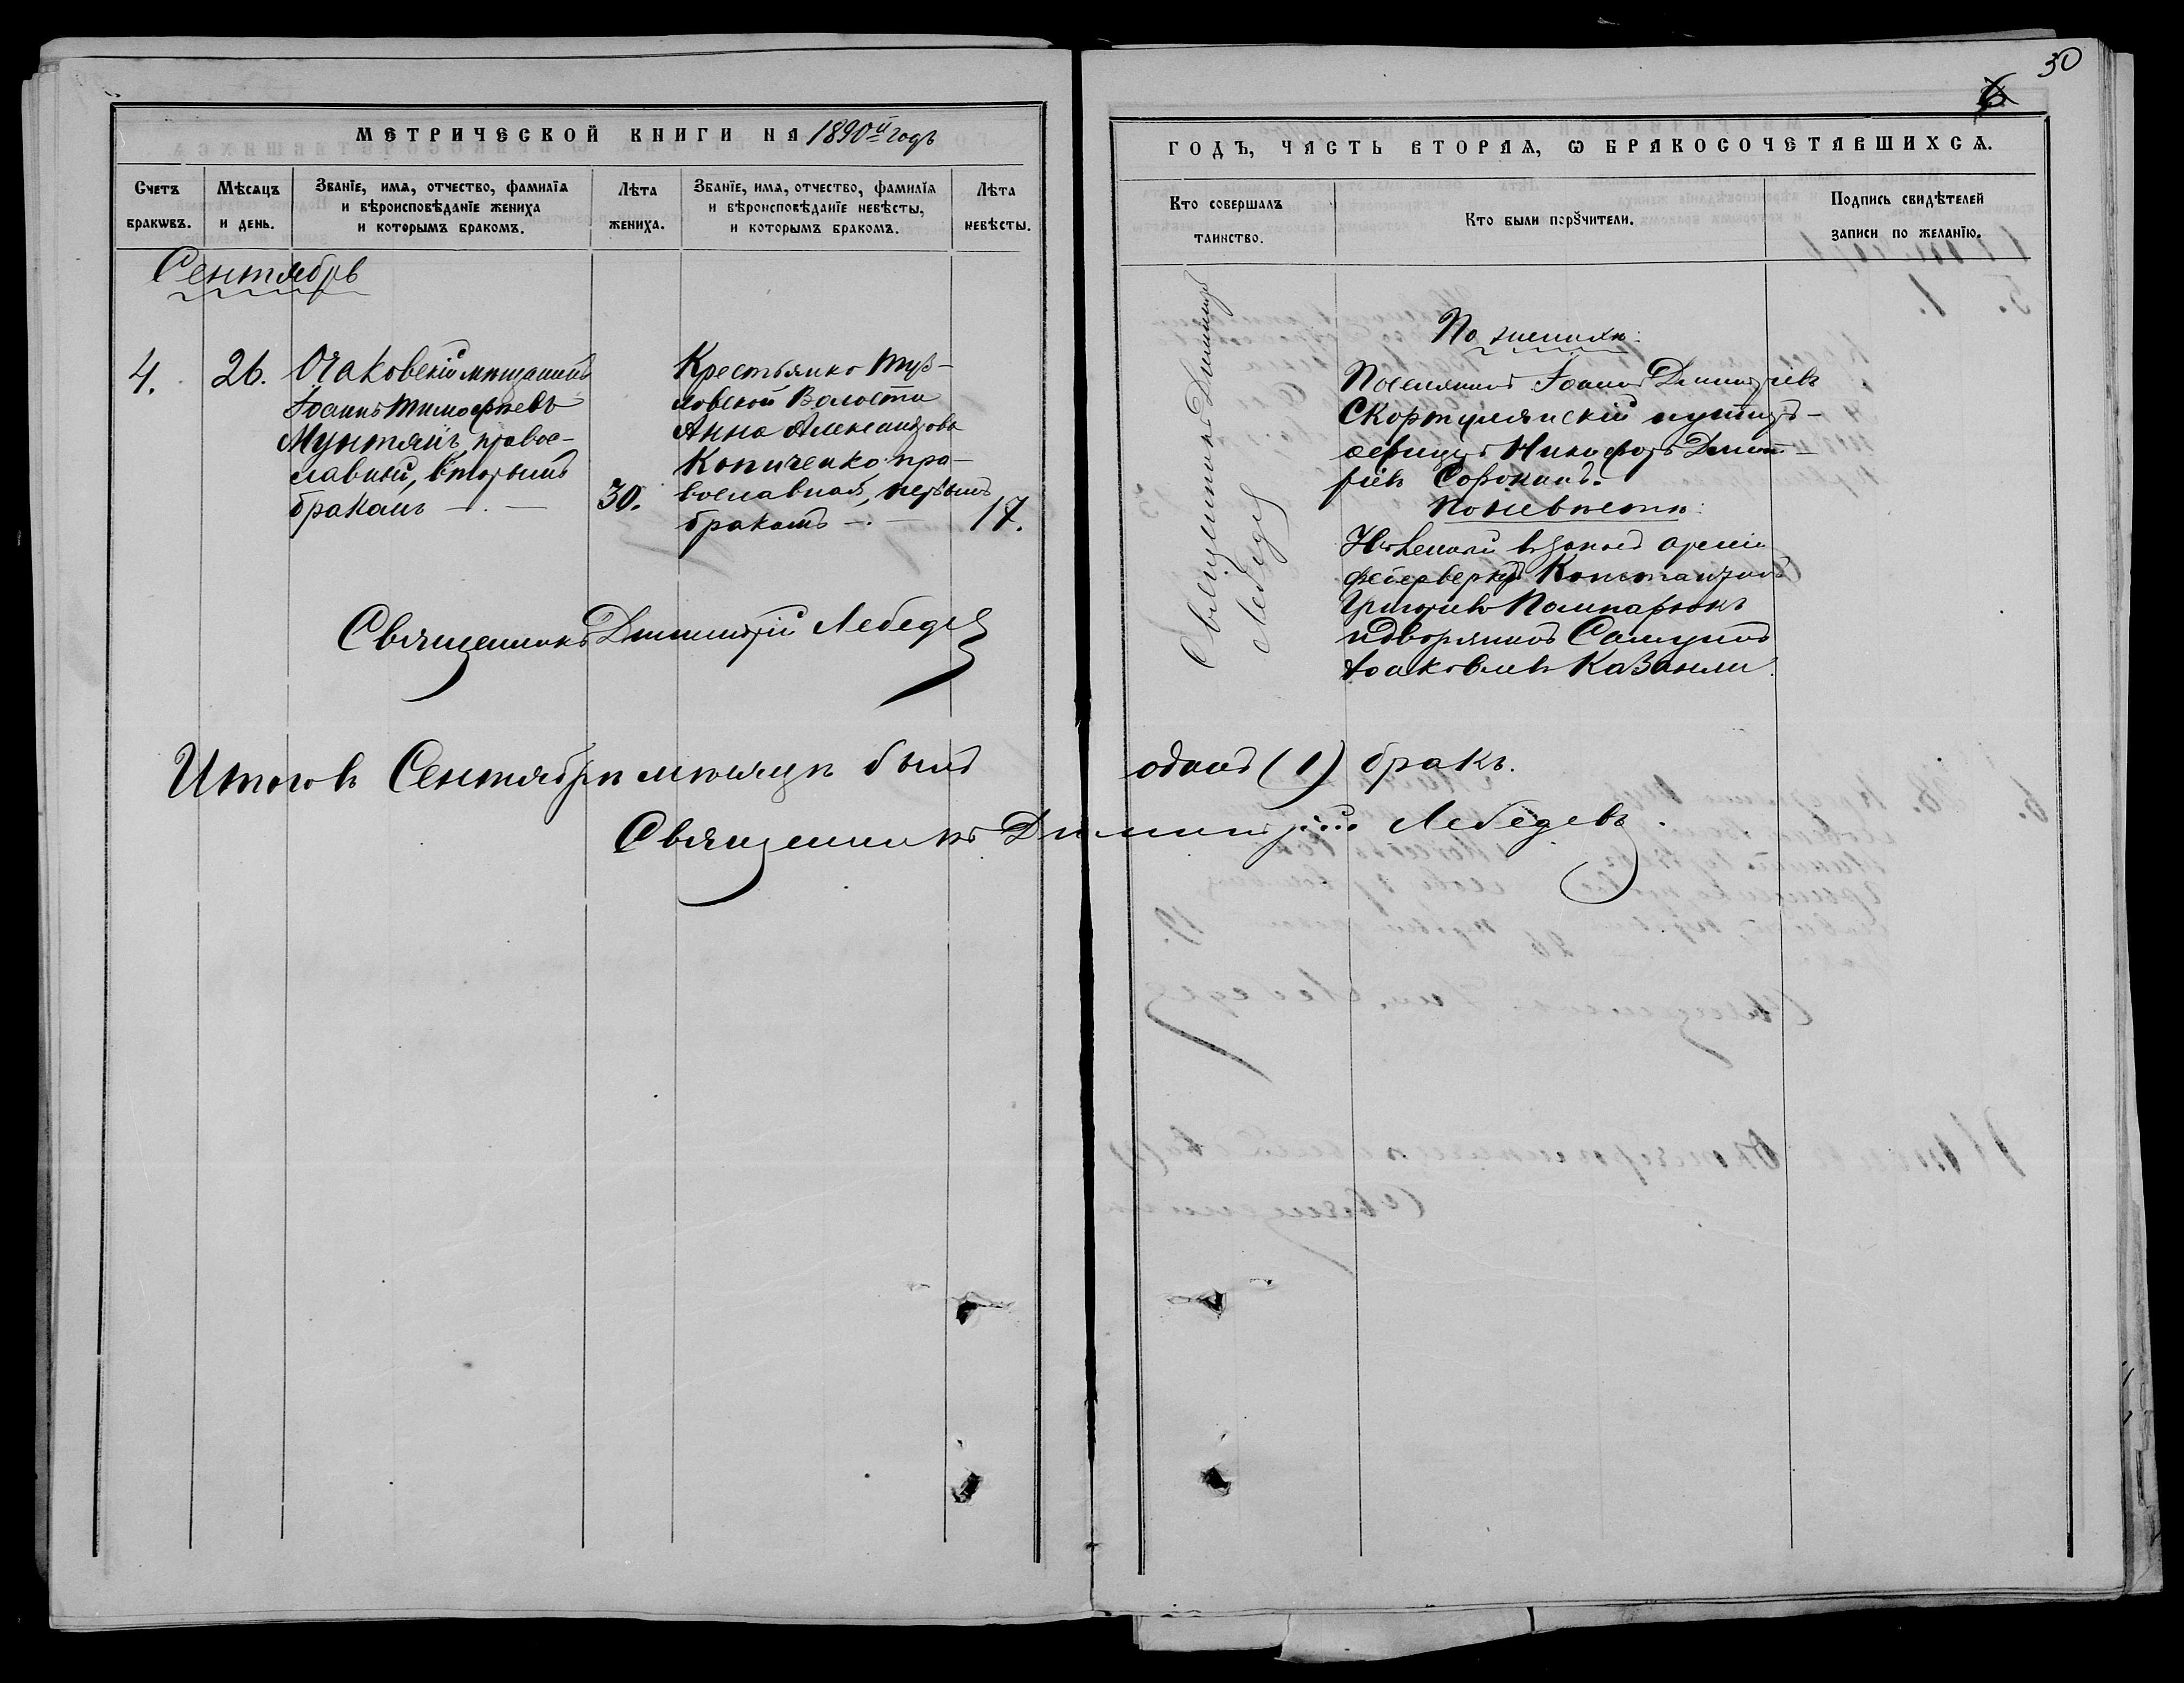 30
6
МЕТРИЧЕСКОЙ КНИГИ НА 1890й годъ
ГОДЪ, ЧАСТЬ ВТОРАЯ, Ѡ БРАКОСОЧЕТАВШИХСѦ.
Счетъ браквъ.
Мѣсѧцъ и день.
Званїе, имѧ, отчество, фамилїѧ
и вѣроисповѣданїе жениха
и которымъ бракомъ.
Лѣта жениха.
Званїе, имѧ, отчество, фамилїѧ
и вѣроисповѣданїе невѣсты,
и которымъ бракомъ.
Лѣта невѣсты.
Кто совершалъ
таинство.
Кто были порꙋчители.
Подпись свидѣтелей
записи по желанїю.
Сентябрь
4.
26.
Очаковскій мѣщанинъ
Іоаннъ Тимофѣевъ
Мунтянъ, правос-
лавный, вторымъ
бракомъ
30.
Крестьянка Туз-
ловской Волости
Анна Александрова
Копиченко пра-
вославная, первымъ
бракомъ
17.
Священникъ Димитрій
Лебедев
По женихѣ:
Поселянинъ Іоаннъ Димитріевъ
Скортулянскій
Никифоръ Димит-
ріевъ Сорокинъ.
По невѣстѣ:
въ запасъ арміи
фейерверкеръ Константинъ
и дворянинъ Самуилъ
Іоаковлевъ Казанли.
Священникъ Димитрій Лебедев
Итого въ Сентябрѣ мѣсяцѣ былъ одинъ (1) бракъ.
Священникъ Димитрій Лебедевъ.